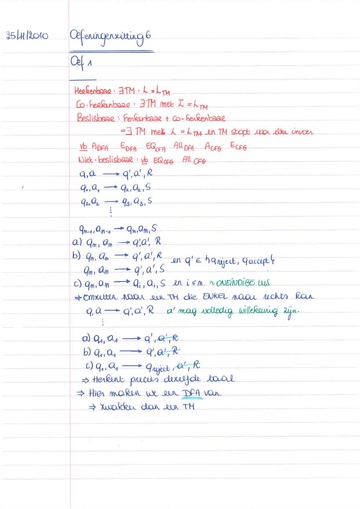 25/11/2010 Oefeningenzitting 6
Oef 1
Herkenbaar: ∃TM: L = L_TM
Co-herkenbaar: ∃TM met L̅ = L_TM
Beslisbaar: Herkenbaar + co-herkenbaar
= ∃ TM met L = L_TM en TM stopt voor elke invoer
vb A_DFA E_DFA EQ_DFA ALL_DFA A_CFG E_CFG
Niet-beslisbaar: vb EQ_CFG ALL_CFG
q,a → q',a',R
q₁,a₁ → q₂,a₂,S
q₂,a₂ → q₃,a₃,S
⋮
qₙ₋₁,aₙ₋₁ → qₙ,aₙ,S
a) qₙ,aₙ → q',a',R
b) qₙ,aₙ → q',a',R en q' ∈ {q_reject, q_accept}
qₙ,aₙ → q',a',S
c) qₙ,aₙ → qᵢ,aᵢ,S en i ≤ n. → ONEINDIGE LUS
⇒ Omzetten naar een TM die ENKEL naar rechts kan
q,a → q',a',R a' mag volledig willekeurig zijn.
⋮
a) q₁,a₁ → q',a',R
b) q₁,a₁ → q',a',R
c) q₁,a₁ → q_reject,a',R
⇒ Herkent precies dezelfde taal
⇒ Hier maken we een DFA van
⇒ zwakker dan een TM